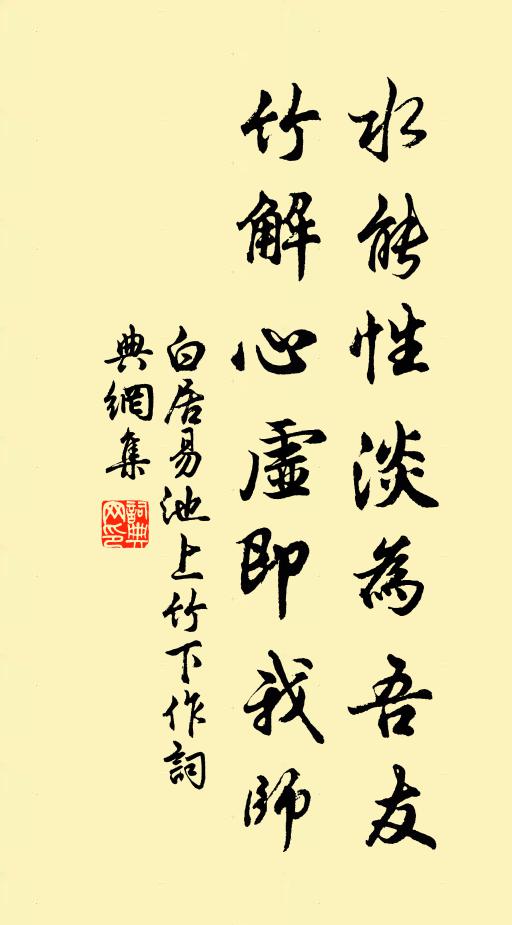 水能性淡為吾友
竹解心虛即我師
白居易池上竹下作詞
典網集
詞典
网印